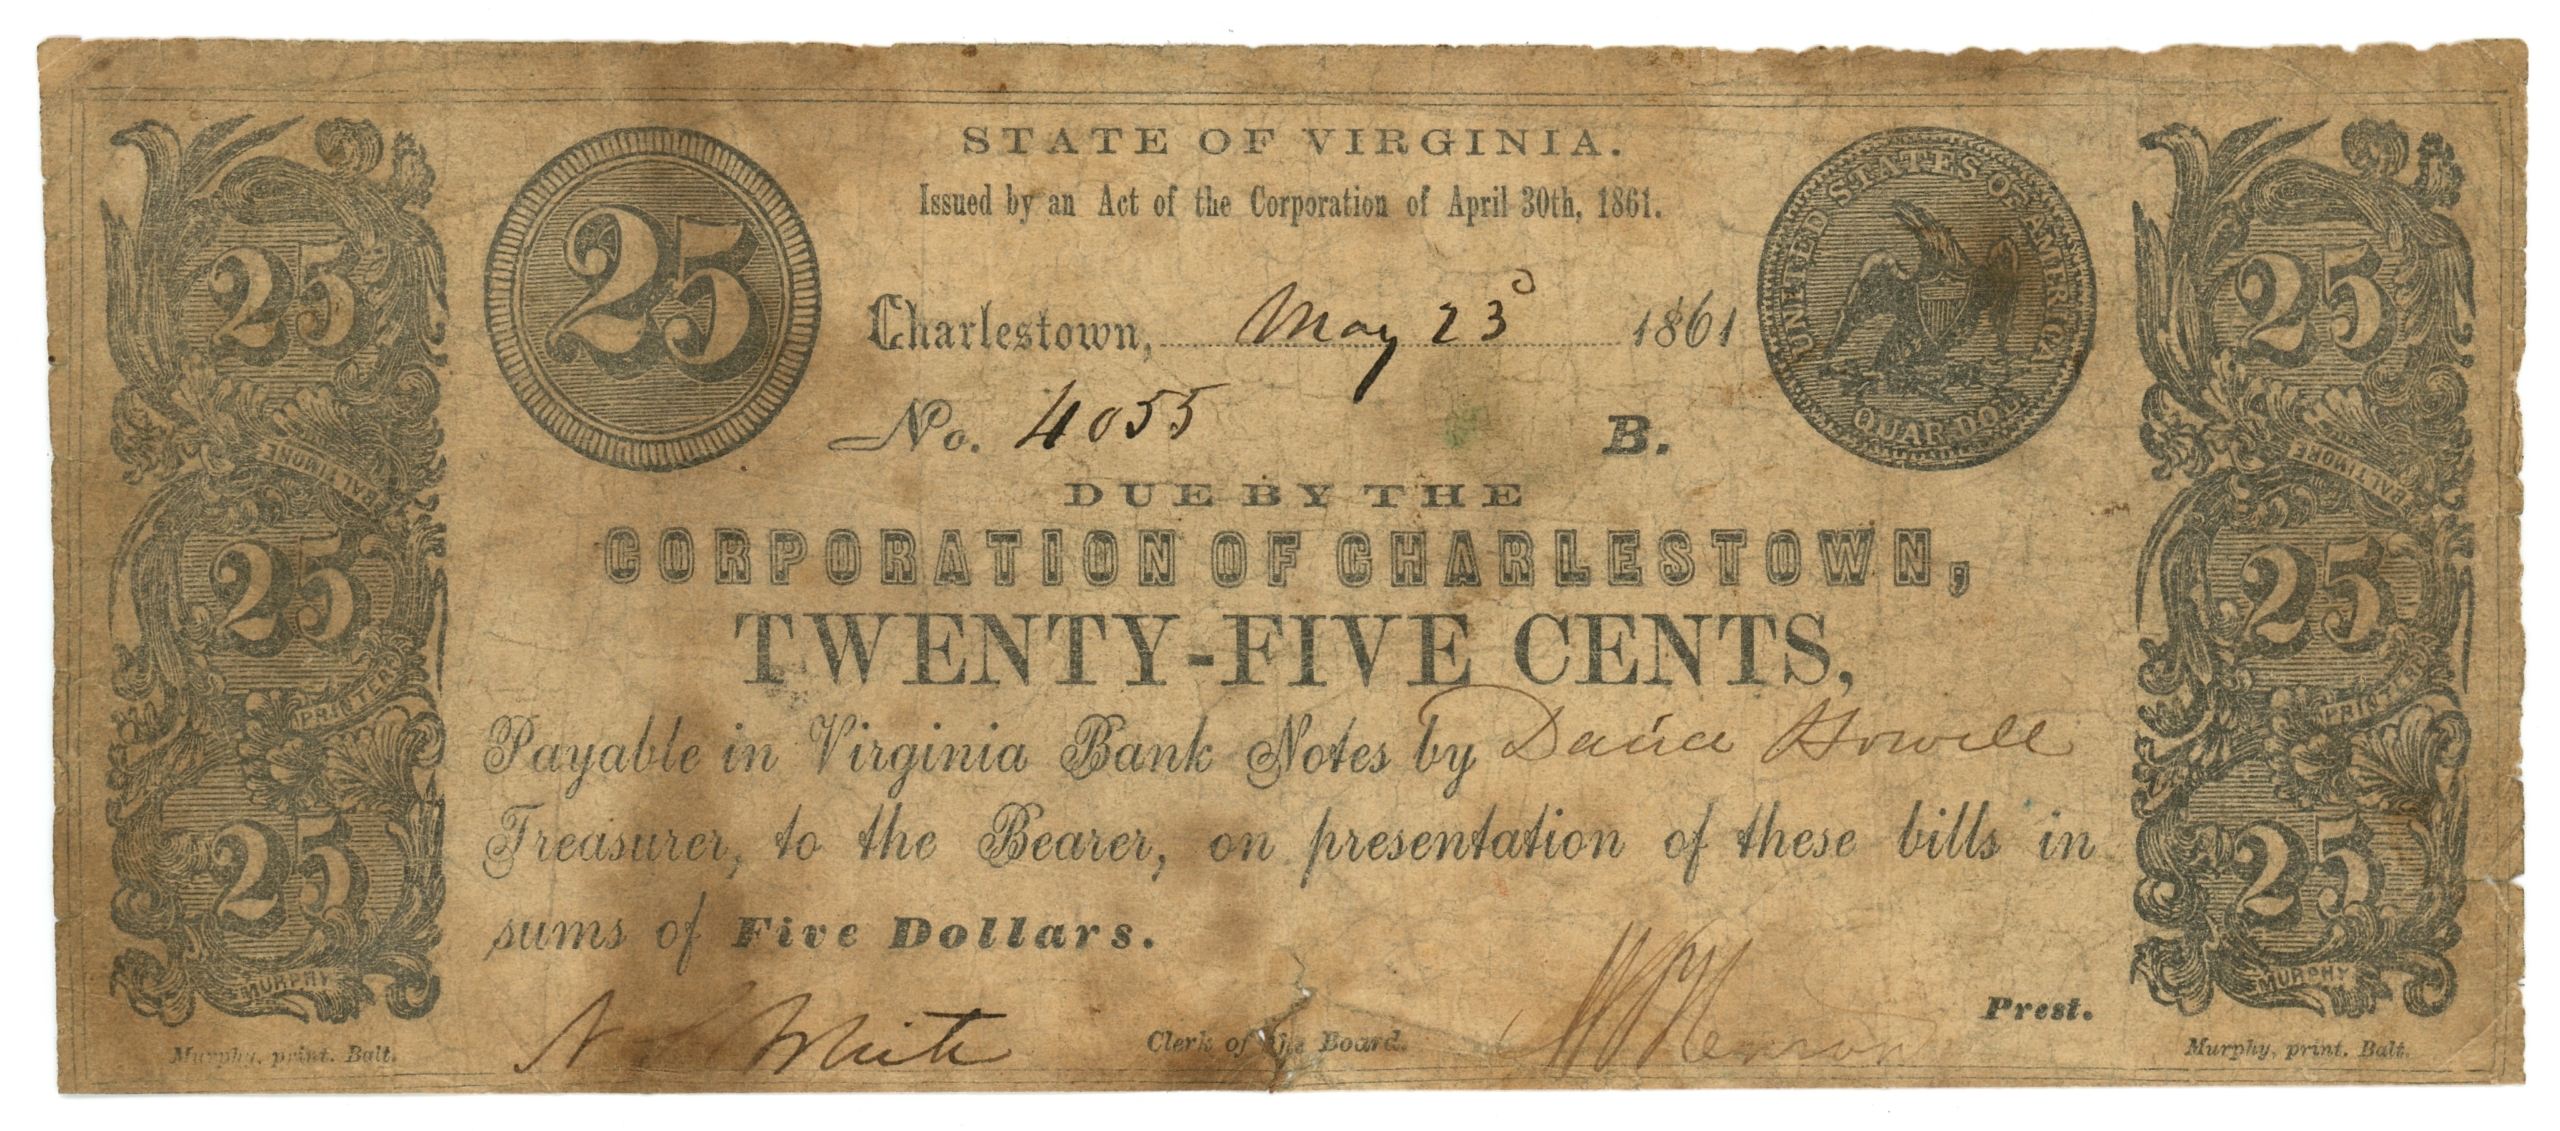 STATE OF VIRGINIA.
Issued by an Act of the Corporation of April 30th, 1861.
25
UNITED STATES OF AMERICA
QUAR. DOL.
Charlestown, May 23d 1861
No. 4055 B.
DUE BY THE
CORPORATION OF CHARLESTOWN,
TWENTY-FIVE CENTS,
Payable in Virginia Bank Notes by Howell
Treasurer, to the Bearer, on presentation of these bills in
sums of Five Dollars.
N White Clerk of the Board.
Prest.
25
BALTIMORE
25
PRINTER
25
MURPHY
Murphy, print. Balt.
25
BALTIMORE
25
PRINTER
25
MURPHY
Murphy, print. Balt.